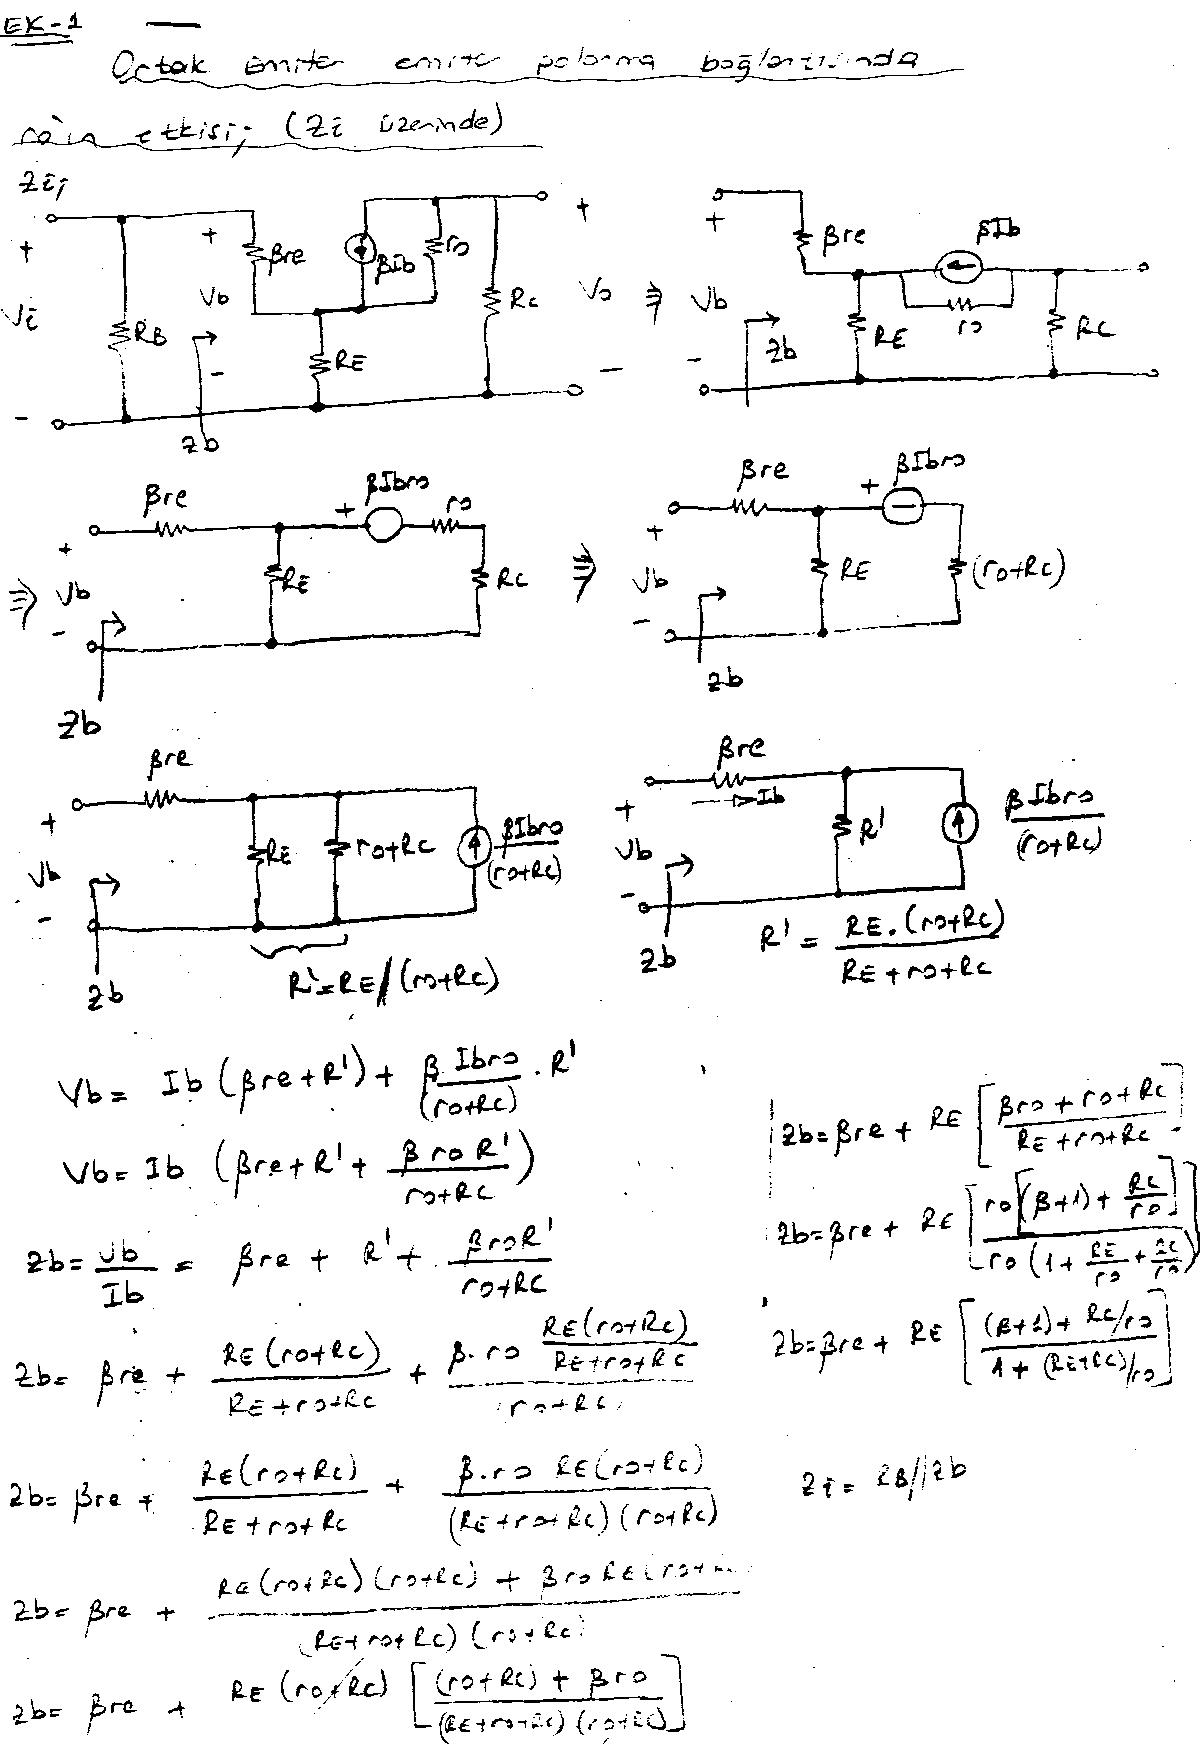 EK-1
Ortak Emiter emiter polarma bağlantısında
ro'ın etkisi; (Zi üzerinde)
Zi;
+ Vi -
RB
+ Vb -
βre
βIb
ro
RE
Rc
Zb
+ Vo -
⇒
+ Vb -
βre
βIb
ro
RE
RC
Zb
⇒
+ Vb -
βre
RE
+ βIbro
ro
Rc
Zb
⇒
+ Vb -
βre
RE
+ βIbro -
(ro+Rc)
Zb
+ Vb -
βre
RE
ro+Rc
βIbro
(ro+Rc)
Zb
R'=RE//(ro+Rc)
+ Vb -
βre
Ib
R'
βIbro
(ro+Rc)
Zb
R' = RE.(ro+Rc) / RE+ro+Rc
Vb= Ib (βre+R') + β.Ibro / (ro+Rc) . R'
Vb= Ib (βre+R' + βroR' / ro+Rc)
Zb= Vb / Ib = βre + R' + βroR' / ro+Rc
Zb= βre + RE(ro+Rc) / RE+ro+Rc + β.ro RE(ro+Rc) / RE+ro+Rc / ro+Rc
Zb= βre + RE(ro+Rc) / RE+ro+Rc + β.ro RE(ro+Rc) / (RE+ro+Rc)(ro+Rc)
Zb= βre + RE(ro+Rc)(ro+Rc) + βroRE(ro+ / (RE+ro+Rc)(ro+Rc)
Zb= βre + RE (ro+Rc) [(ro+Rc) + βro / (RE+ro+Rc)(ro+Rc)]
Zb=βre + RE [βro+ro+Rc / RE+ro+Rc]
Zb=βre + RE [ro[(β+1)+ Rc/ro] / ro(1+ RE/ro + Rc/ro)]
Zb=βre + RE [(β+1)+ Rc/ro / 1+ (RE+Rc)/ro]
Zi= RB//Zb